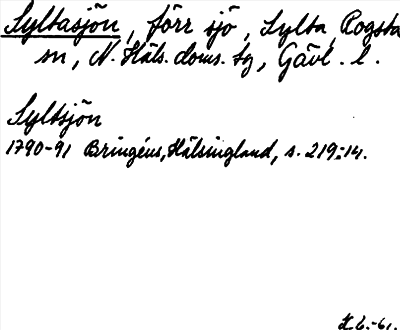 Syltasjön, förr sjö, Sylta, Rogsta
sn, N. Häls. doms. tg, Gävl. l.
Syltsjön
1790-91 Bringéus, Hälsingland, s. 219:14.